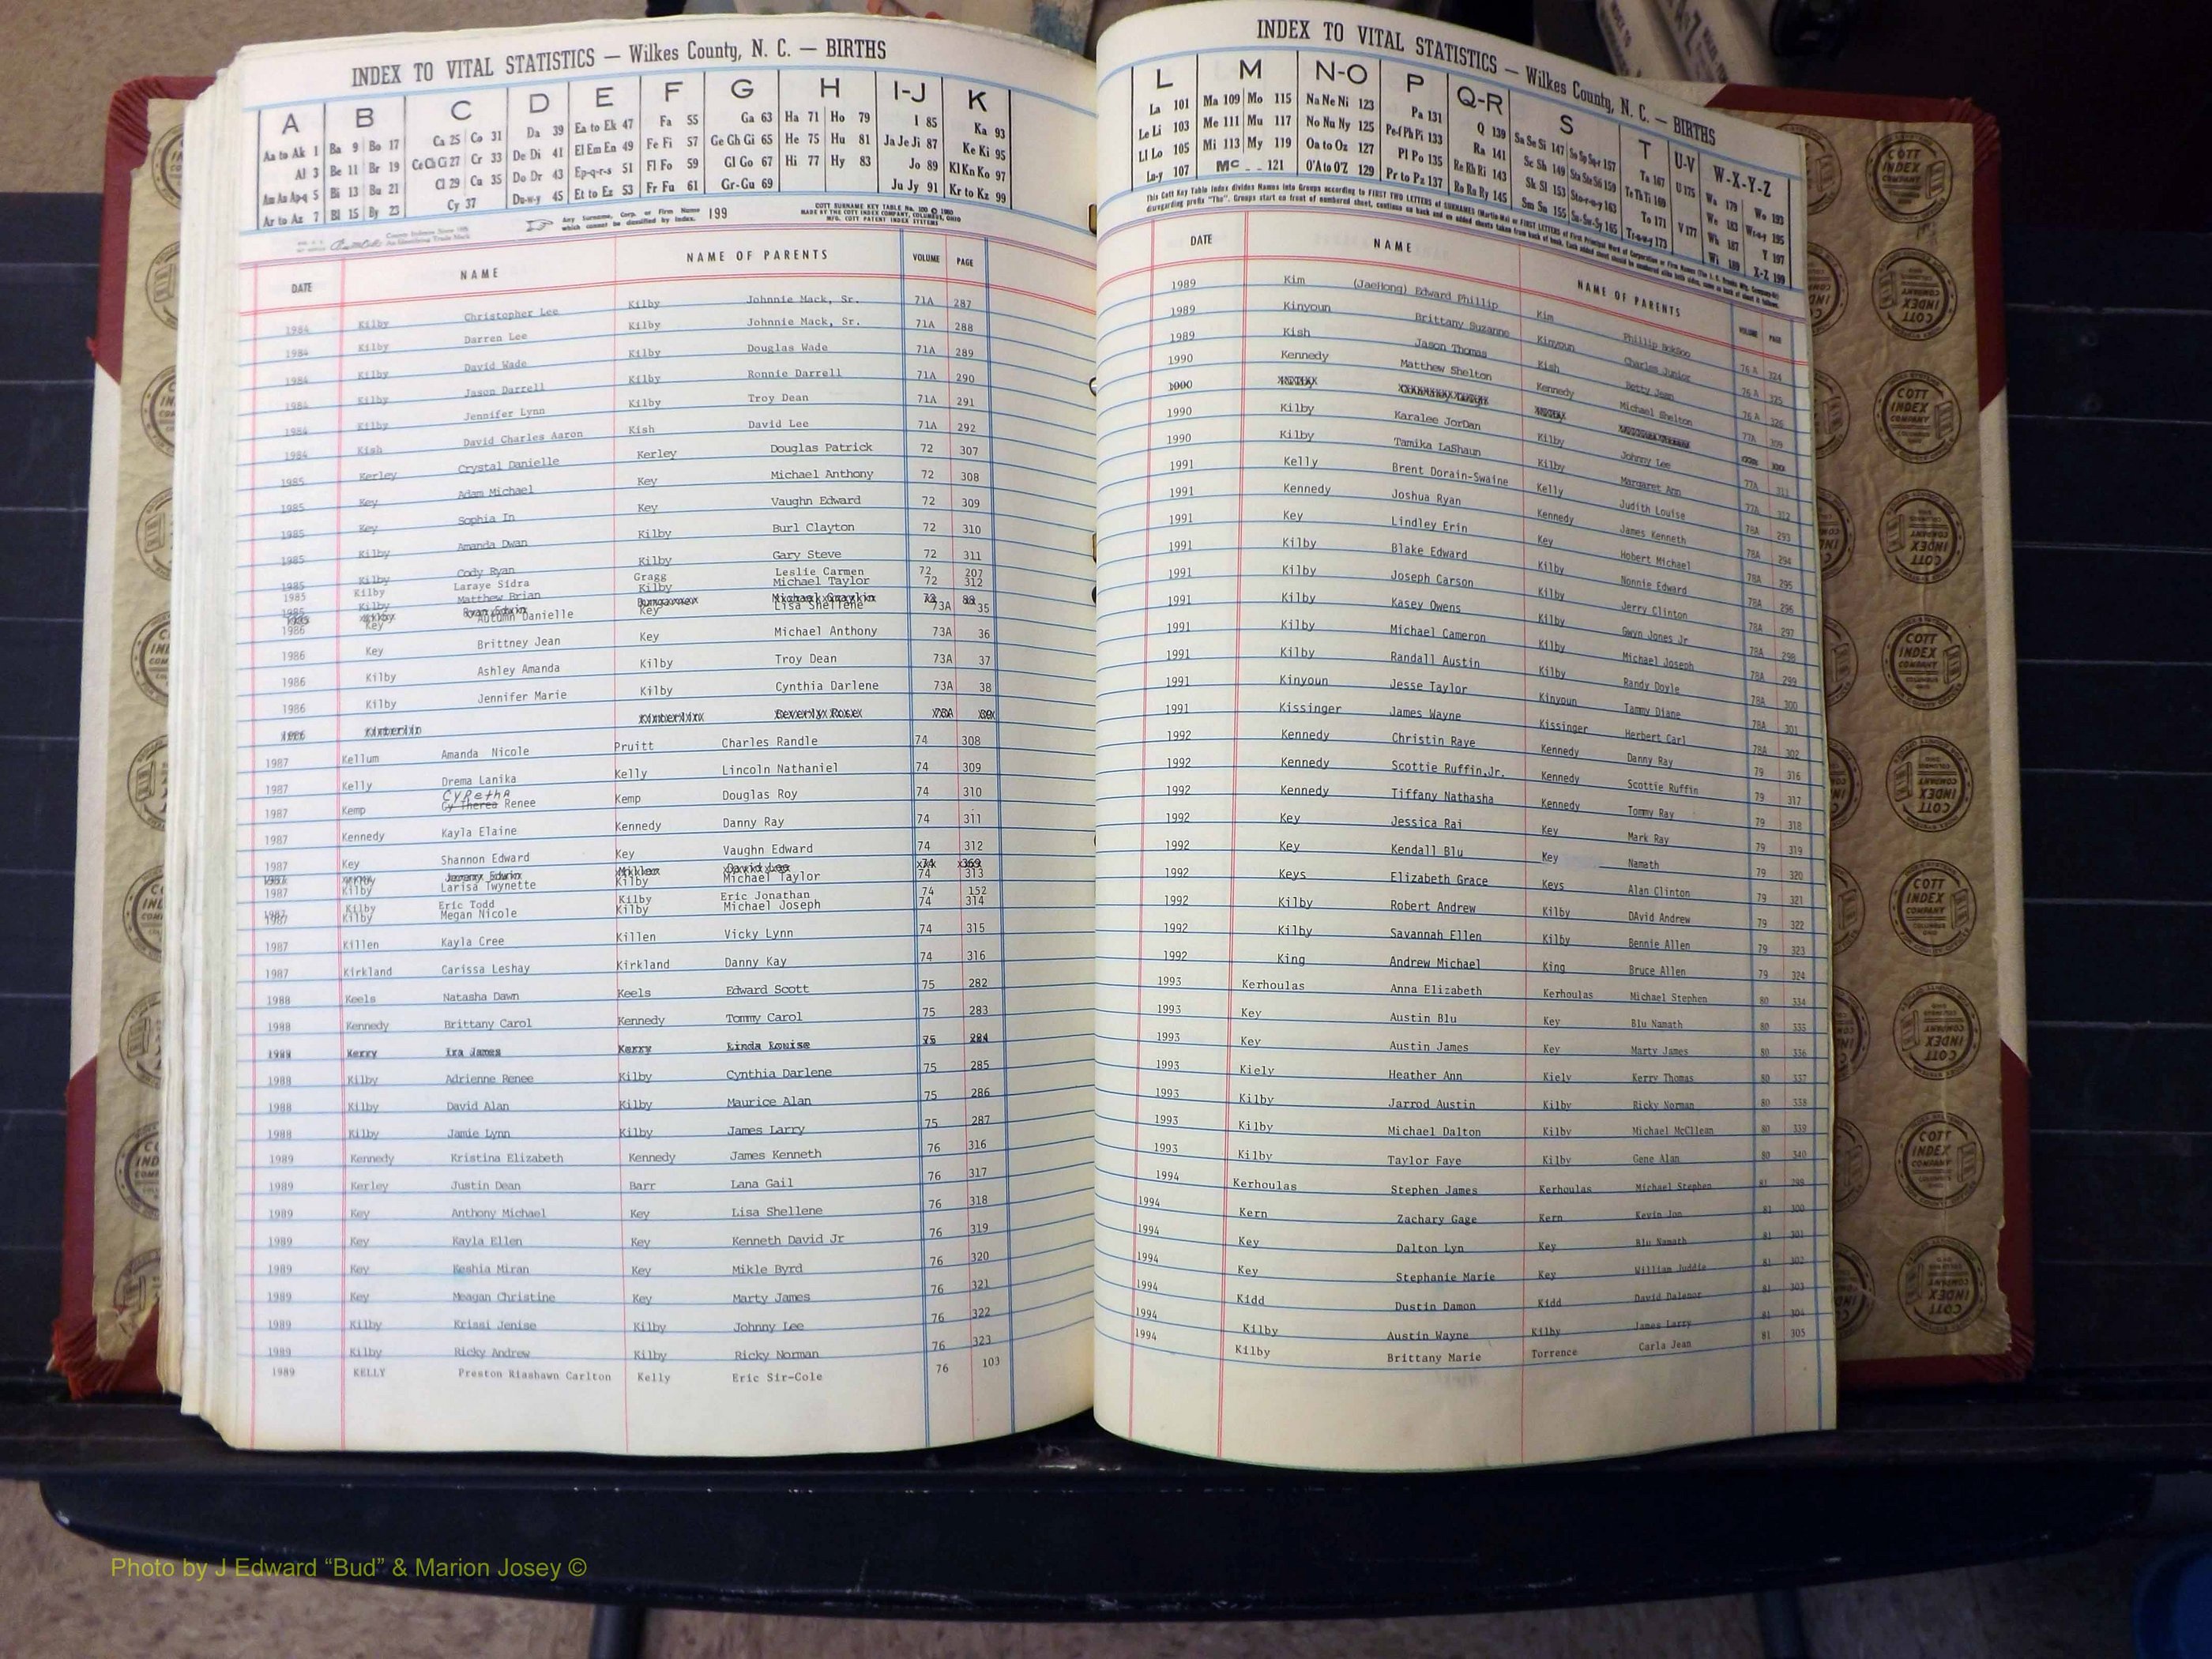 INDEX TO VITAL STATISTICS — Wilkes County, N. C. — BIRTHS
A B C D E F G H I-J K
Aa to Ak 1 Ba 9 Bo 17 Ca 25 Co 31 Da 39 Ea to Ek 47 Fa 55 Ga 63 Ha 71 Ho 79 I 85 Ka 93
Al 3 Be 11 Br 19 Ce Ch Ci 27 Cr 33 De Di 41 El Em En 49 Fe Fi 57 Ge Gh Gi 65 He 75 Hu 81 Ja Je Ji 87 Ke Ki 95
Am An Ap-q 5 Bi 13 Bu 21 Cl 29 Cu 35 Do Dr 43 Ep-q-r-s 51 Fl Fo 59 Gl Go 67 Hi 77 Hy 83 Jo 89 Kl Kn Ko 97
Ar to Az 7 Bl 15 By 23 Cy 37 Du-w-y 45 Et to Ez 53 Fr Fu 61 Gr-Gu 69 Ju Jy 91 Kr to Kz 99
Any Surname, Corp. or Firm Name which cannot be classified by index. 199
COTT SURNAME KEY TABLE No. 100 © 1960
MADE BY THE COTT INDEX COMPANY, COLUMBUS, OHIO
MFG. COTT PATENT INDEX SYSTEMS
DATE NAME NAME OF PARENTS VOLUME PAGE
1984 Kilby Christopher Lee Kilby Johnnie Mack, Sr. 71A 287
1984 Kilby Darren Lee Kilby Johnnie Mack, Sr. 71A 288
1984 Kilby David Wade Kilby Douglas Wade 71A 289
1984 Kilby Jason Darrell Kilby Ronnie Darrell 71A 290
1984 Kilby Jennifer Lynn Kilby Troy Dean 71A 291
1984 Kish David Charles Aaron Kish David Lee 71A 292
1985 Kerley Crystal Danielle Kerley Douglas Patrick 72 307
1985 Key Adam Michael Key Michael Anthony 72 308
1985 Key Sophia In Key Vaughn Edward 72 309
1985 Kilby Amanda Dwan Kilby Burl Clayton 72 310
1985 Kilby Cody Ryan Kilby Gary Steve 72 311
1985 Kilby Laraye Sidra Gragg Leslie Carmen 72 207
1985 Kilby Matthew Brian Kilby Michael Taylor 72 312
1986 Key Autumn Danielle Key Lisa Shellene 73A 35
1986 Key Brittney Jean Key Michael Anthony 73A 36
1986 Kilby Ashley Amanda Kilby Troy Dean 73A 37
1986 Kilby Jennifer Marie Kilby Cynthia Darlene 73A 38
1987 Kellum Amanda Nicole Pruitt Charles Randle 74 308
1987 Kelly Drema Lanika Kelly Lincoln Nathaniel 74 309
CyRetha
1987 Kemp Cy Therea Renee Kemp Douglas Roy 74 310
1987 Kennedy Kayla Elaine Kennedy Danny Ray 74 311
1987 Key Shannon Edward Key Vaughn Edward 74 312
1987 Kilby Larisa Twynette Kilby Michael Taylor 74 313
1987 Kilby Eric Todd Kilby Eric Jonathan 74 152
1987 Kilby Megan Nicole Kilby Michael Joseph 74 314
1987 Killen Kayla Cree Killen Vicky Lynn 74 315
1987 Kirkland Carissa Leshay Kirkland Danny Kay 74 316
1988 Keels Natasha Dawn Keels Edward Scott 75 282
1988 Kennedy Brittany Carol Kennedy Tommy Carol 75 283
1988 Kerry Ira James Kerry Linda Louise 75 284
1988 Kilby Adrienne Renee Kilby Cynthia Darlene 75 285
1988 Kilby David Alan Kilby Maurice Alan 75 286
1988 Kilby Jamie Lynn Kilby James Larry 75 287
1989 Kennedy Kristina Elizabeth Kennedy James Kenneth 76 316
1989 Kerley Justin Dean Barr Lana Gail 76 317
1989 Key Anthony Michael Key Lisa Shellene 76 318
1989 Key Kayla Ellen Key Kenneth David Jr 76 319
1989 Key Keshia Miran Key Mikle Byrd 76 320
1989 Key Meagan Christine Key Marty James 76 321
1989 Kilby Krissi Jenise Kilby Johnny Lee 76 322
1989 Kilby Ricky Andrew Kilby Ricky Norman 76 323
1989 KELLY Preston Riashawn Carlton Kelly Eric Sir-Cole 76 103
INDEX TO VITAL STATISTICS — Wilkes County, N. C. — BIRTHS
L M N-O P Q-R S T U-V W-X-Y-Z
La 101 Ma 109 Mo 115 Na Ne Ni 123 Pa 131 Q 139 Sa Se Si 147 So Sp Sq-r 157 Ta 167 U 175 Wa 179 Wo 193
Le Li 103 Me 111 Mu 117 No Nu Ny 125 Pe-f Ph Pi 133 Ra 141 Sc Sh 149 Sta Ste Sti 159 Te Th Ti 169 We 183 Wr-u-y 195
Ll Lo 105 Mi 113 My 119 Oa to Oz 127 Pl Po 135 Re Rh Ri 143 Sk Sl 153 Sto-r-u-y 163 To 171 V 177 Wh 187 Y 197
Lu-y 107 Mc 121 O'A to O'Z 129 Pr to Pz 137 Ro Ru Ry 145 Sm Sn 155 Su-Sw-Sy 165 Tr-u-w-y 173 Wi 189 X-Z 199
DATE NAME NAME OF PARENTS VOLUME PAGE
1989 Kim (JaeHong) Edward Phillip Kim Phillip 76 A 324
1989 Kinyoun Brittany Suzanne Kinyoun Charles Junior 76 A 325
1989 Kish Jason Thomas Kish Betty Jean 76 A 326
1990 Kennedy Matthew Shelton Kennedy Michael Shelton 77A 309
1990 Kilby Karalee JorDan Kilby Johnny Lee 77A 311
1990 Kilby Tamika LaShaun Kilby Margaret Ann 77A 312
1991 Kelly Brent Dorain-Swaine Kelly Judith Louise 78A 293
1991 Kennedy Joshua Ryan Kennedy James Kenneth 78A 294
1991 Key Lindley Erin Key Hobert Michael 78A 295
1991 Kilby Blake Edward Kilby Nonnie Edward 78A 296
1991 Kilby Joseph Carson Kilby Jerry Clinton 78A 297
1991 Kilby Kasey Owens Kilby Gwyn Jones Jr 78A 298
1991 Kilby Michael Cameron Kilby Michael Joseph 78A 299
1991 Kilby Randall Austin Kilby Randy Doyle 78A 300
1991 Kinyoun Jesse Taylor Kinyoun Tammy Diane 78A 301
1991 Kissinger James Wayne Kissinger Herbert Carl 78A 302
1992 Kennedy Christin Raye Kennedy Danny Ray 79 316
1992 Kennedy Scottie Ruffin,Jr. Kennedy Scottie Ruffin 79 317
1992 Kennedy Tiffany Nathasha Kennedy Tommy Ray 79 318
1992 Key Jessica Rai Key Mark Ray 79 319
1992 Key Kendall Blu Key Namath 79 320
1992 Keys Elizabeth Grace Keys Alan Clinton 79 321
1992 Kilby Robert Andrew Kilby DAvid Andrew 79 322
1992 Kilby Savannah Ellen Kilby Bennie Allen 79 323
1992 King Andrew Michael King Bruce Allen 79 324
1993 Kerhoulas Anna Elizabeth Kerhoulas Michael Stephen 80 334
1993 Key Austin Blu Key Blu Namath 80 335
1993 Key Austin James Key Marty James 80 336
1993 Kiely Heather Ann Kiely Kerry Thomas 80 337
1993 Kilby Jarrod Austin Kilby Ricky Norman 80 338
1993 Kilby Michael Dalton Kilby Michael McClean 80 339
1993 Kilby Taylor Faye Kilby Gene Alan 80 340
1994 Kerhoulas Stephen James Kerhoulas Michael Stephen 81 299
1994 Kern Zachary Gage Kern Kevin Jon 81 300
1994 Key Dalton Lyn Key Blu Namath 81 301
1994 Key Stephanie Marie Key William Juddie 81 302
1994 Kidd Dustin Damon Kidd David 81 303
1994 Kilby Austin Wayne Kilby James Larry 81 304
1994 Kilby Brittany Marie Torrence Carla Jean 81 305
COTT INDEX COMPANY COLUMBUS OHIO
Photo by J Edward “Bud” & Marion Josey ©